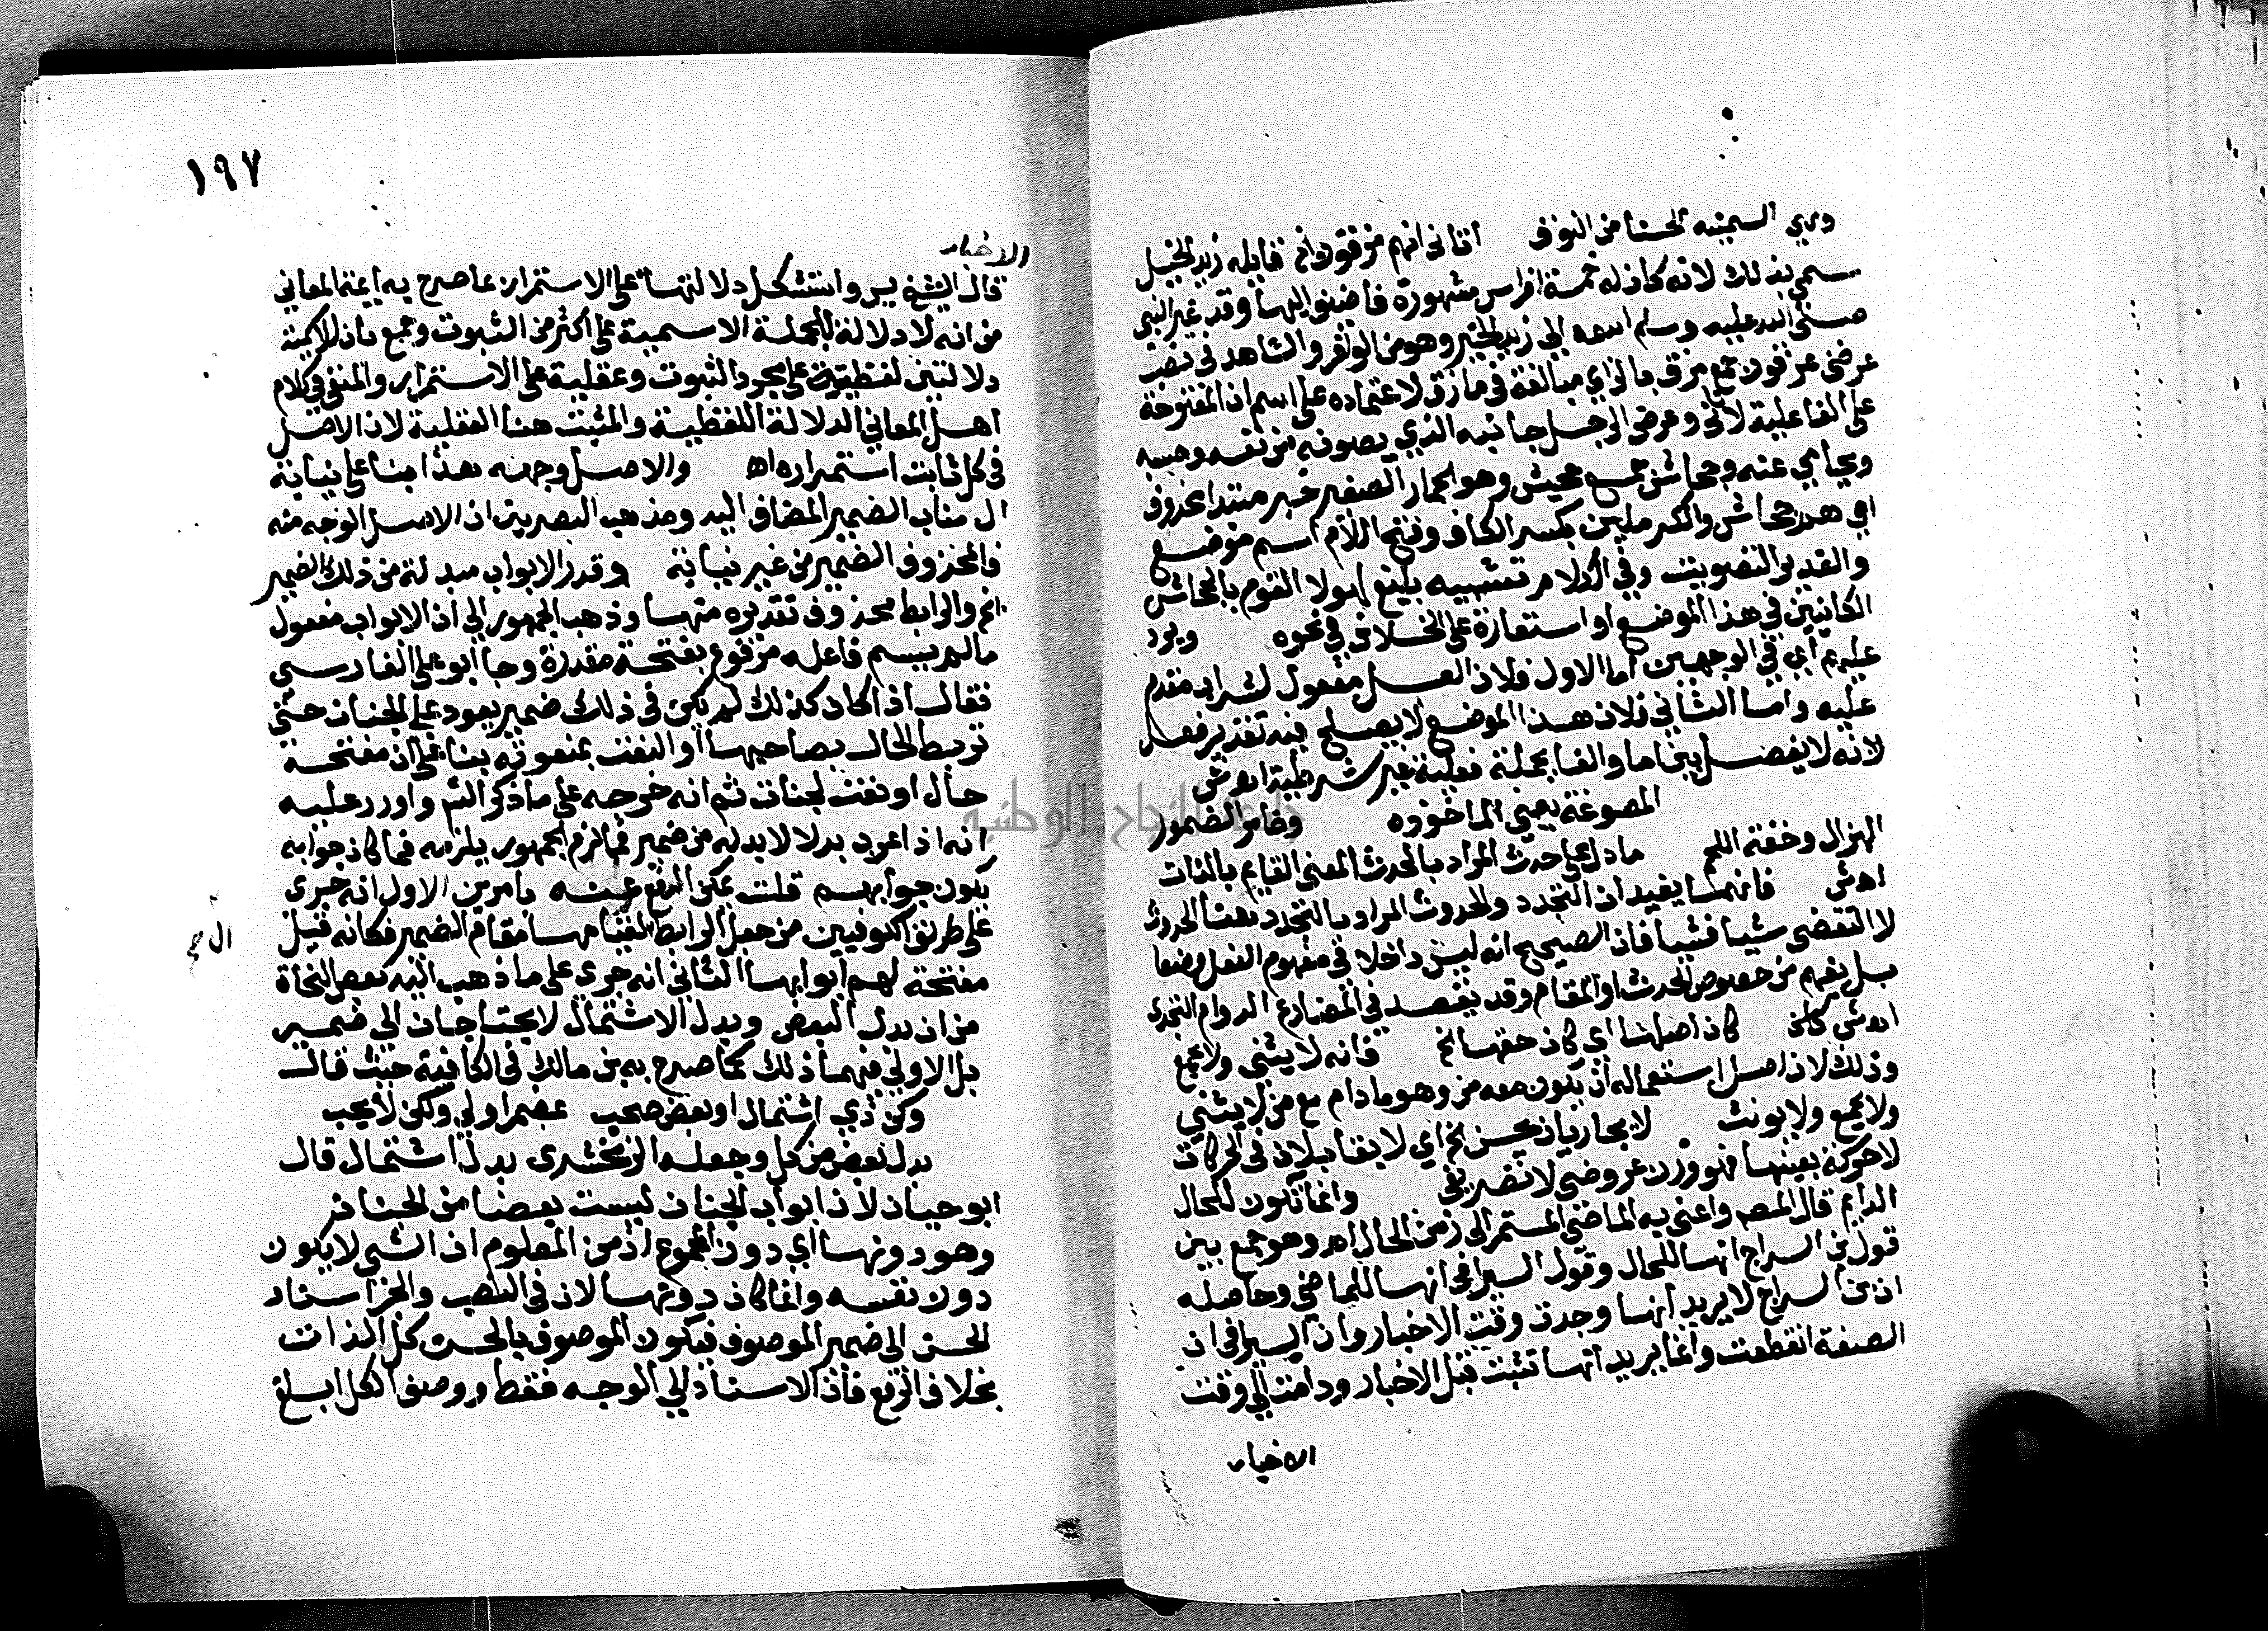 وهي السمينه الحسنا من النوق اتاني انهم مزقون الخ قايله زيد الخيل
سمي بذلك لانه كان له خمسة افراس مشهورة فاضيف اليها وقد غير النبي
صلى الله عليه وسلم اسمه الى زيد الخير وهو من الوافر والشاهد في نصب
عرضي بمزقون جمع مزق بالزاي مبالغة في مازق لاعتماده على اسم ان المفتوحة
على الفاعلية لاتى وعرض الرجل جانبه الذي يصونه من نفسه وحسبه
ويحامي عنه وجحاش جمع جحش وهو الحمار الصغير خبر مبتدا محذوف
اي هم جحاش والكرملين بكسر الكاف وفتح اللام اسم موضع
والفديد التصويت وفي الكلام تشبيه بليغ اي هولا القوم بالجحاش
الكاينين في هذا الموضع او استعارة على الخلاف في نحوه ويرد
عليهم اي في الوجهين اما الاول فلان العسل مفعول لشراب مقدم
عليه واما الثاني فلان هذا الموضع لا يصلح فيه تقدير فعل
لانه لا يفصل بين اما والفا بجملة فعلية غير شرطية اهـ ش
المصوغة يعني الماخوذه وضامر الضمور
الهزال وخفة اللحم ما دل على حدث المراد بالحدث المعنى القايم بالذات
اهـ ش فانهما يفيدان التجدد والحدوث المراد بالتجدد هنا الحدوث
لا التقضي شيا فشيا فان الصحيح انه ليس داخلا في مفهوم الفعل وضعا
بل يفهم من خصوص الحدث او المقام وقد يقصد في المضارع الدوام التجددي
اهـ ش كان اصلها اي كان حقها الخ فانه لا يثنى ولا يجمع
وذلك لان اصل استعماله ان يكون معه من وهو ما دام مع من لا يثنى
ولا يجمع ولا يونث لا يجاريان يحسن الخ اي لا يقابلان في الحركات
لا حركة بعينها فهو وزن عروضي لا تصريفي وانما تكون للحال
الدايم قال المصنف واعني به الماضي المستمر الى زمن الحال اهـ وهو جمع بين
قول بن السراج انها للحال وقول السيرافي انها للماضي وحاصله
ان بن السراج لا يريد انها وجدت وقت الاخبار وان السيرافي ان
الصفة انقطعت وانما يريد انها تثبت قبل الاخبار ودامت الى وقت
الاخبار
١٩٧
الاخبار
قال الشيخ يس واستشكل دلالتها على الاستمرار بما صرح به ايمة المعاني
من انه لا دلالة للجملة الاسمية على اكثر من الثبوت وجمع بان للاسمية
دلالتين لفظية على مجرد الثبوت وعقلية على الاستمرار والمنفي في كلام
اهل المعاني الدلالة اللفظية والمثبت هنا العقلية لان الاصل
في كل ثابت استمراره اهـ والاصل وجهه هذا بنا على نيابة
ال مناب الضمير المضاف اليه ومذهب البصريين ان الاصل الوجه منه
فالمحذوف الضمير من غير نيابة وقدر الابواب مبدلة من ذلك الضمير
الخ والرابط محذوف تقديره منها وذهب الجمهور الى ان الابواب مفعول
مالم يسم فاعله مرفوع بمفتحة مقدرة وجا ابو علي الفارسي
فقال اذا كان كذلك لم يكن في ذلك ضمير يعود على الجنان حتى
تربط الحال بصاحبها او النعت بمنعوته بنا على ان مفتحة
حال او نعت لجنات ثم انه خرجه على ما ذكر الش واورد عليه
انه اذا اعرب بدلا لا بد له من ضمير فما لزم الجمهور يلزمه فما كان جوابه
يكون جوابهم قلت يمكن الدفع عنه بامرين الاول انه جرى
على طريق الكوفيين من جعل الرابط لقيامها مقام الضمير فكانه قيل
ال
مفتحة لهم ابوابها الثاني انه جرى على ما ذهب اليه بعض النحاة
من ان بدل البعض وبدل الاشتمال لا يحتاجان الى ضمير
بل الاولى فيهما ذلك كما صرح به بن مالك في الكافية حيث قال
وكون ذي اشتمال او بعض صحب بمضمر اولى ولكن لا يجب
بدل بعض من كل وجعله الزمخشري بدل اشتمال قال
ابو حيان لان ابواب الجنان ليست بعضا من الجنان
وهو دونها اي دون المجموع اذ من المعلوم ان الشي لا يكون
دون نفسه وانما كان دونها لان في النصب والجر اسناد
الحسن الى ضمير الموصوف فيكون الموصوف بالحسن كل الذات
بخلاف الرفع فان الاسناد الى الوجه فقط ووصف الكل ابلغ